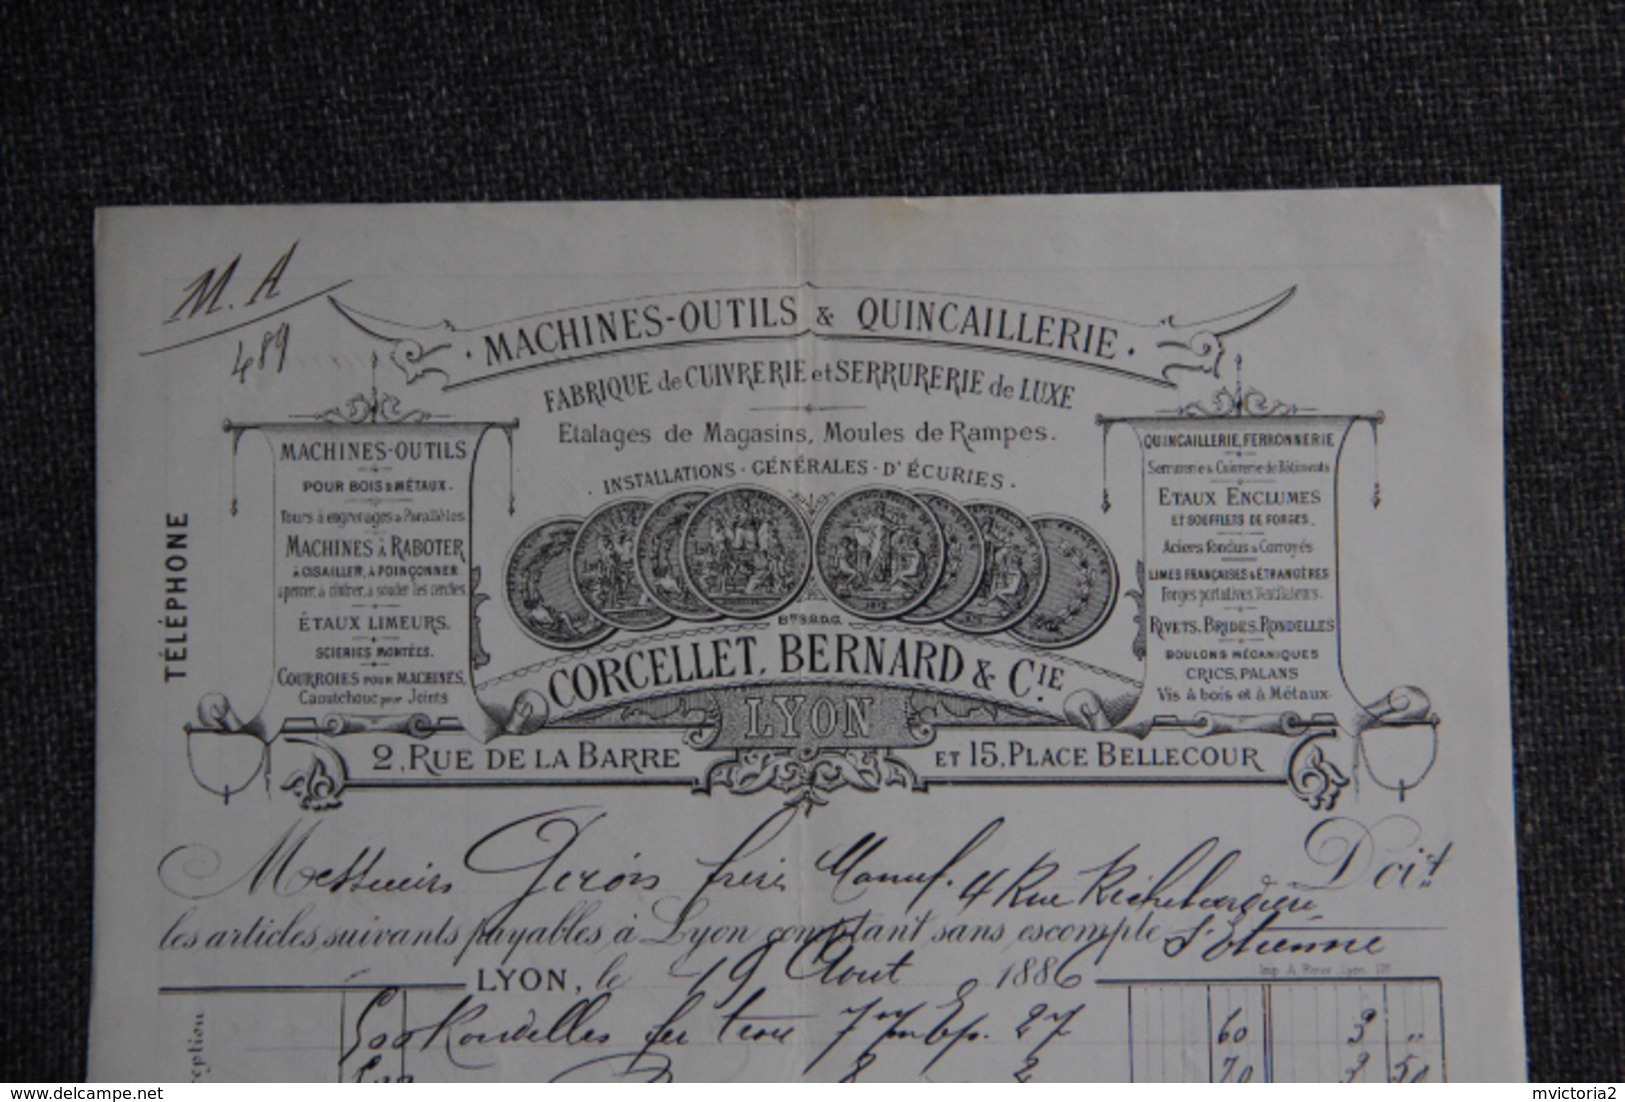 M. A
489
MACHINES-OUTILS & QUINCAILLERIE
FABRIQUE de CUIVRERIE et SERRURERIE de LUXE
Etalages de Magasins, Moules de Rampes.
INSTALLATIONS - GÉNÉRALES - D'ÉCURIES
TÉLÉPHONE
MACHINES-OUTILS
POUR BOIS & MÉTAUX.
Tours à engrenages & Parallèles
MACHINES À RABOTER
À CISAILLER, À POINÇONNER
à percer, à cintrer, à souder les cercles.
ÉTAUX LIMEURS.
SCIERIES MONTÉES.
COURROIES POUR MACHINES,
Caoutchouc pour Joints
QUINCAILLERIE, FERRONNERIE
Serrurerie & Cuivrerie de Bâtiments
ETAUX ENCLUMES
ET SOUFFLETS DE FORGES.
Aciers fondus & Corroyés
LIMES FRANÇAISES & ÉTRANGÈRES
Forges portatives, Ventilateurs.
RIVETS, BRIDES, RONDELLES
BOULONS MÉCANIQUES
CRICS, PALANS
Vis à bois et à Métaux.
Btés S.G.D.G.
CORCELLET, BERNARD & CIE.
LYON
2, RUE DE LA BARRE ET 15, PLACE BELLECOUR
Messieurs frères Manuf. 4 Rue Doit
les articles suivants payables à Lyon comptant sans escompte St Etienne
Imp. A. Lyon.
LYON, le 19 Aout 1886
500 Rondelles fer trou 7 m/m Ep. 27 60 3 "
8 2 70 3 50
delcampe.net
mvictoria2